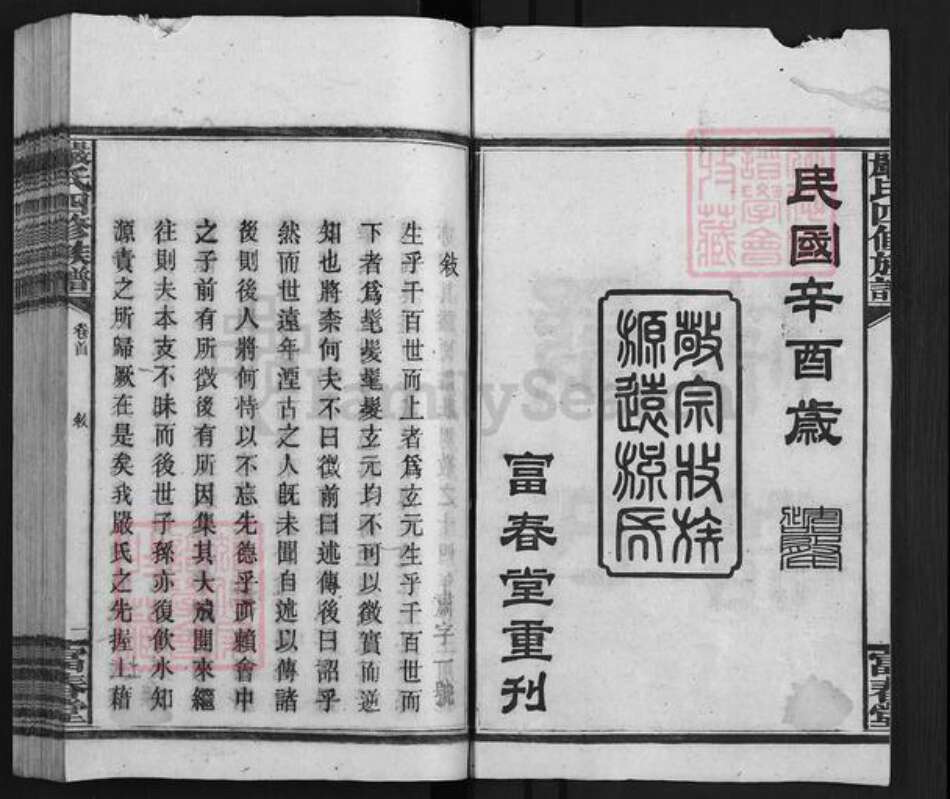 嚴氏四修族譜
民國辛酉歲
敬宗收族
源遠流長
富春堂重刊
富春堂
FamilySearch
敘
生乎千百世而上者爲玄元生乎千百世而
下者爲髦髮髦髮玄元均不可以徵實而逆
知也將柰何夫不曰徵前曰述傳後曰詔乎
然而世遠年湮古之人既未聞自述以傳諸
後則後人將何恃以不忘先德乎所賴會中
之子前有所徵後有所因集其大成開來繼
往則夫本支不昧而後世子孫亦復飲水知
源責之所歸厥在是矣我嚴氏之先握土藉
嚴氏四修族譜
卷首
敘
一
富春堂